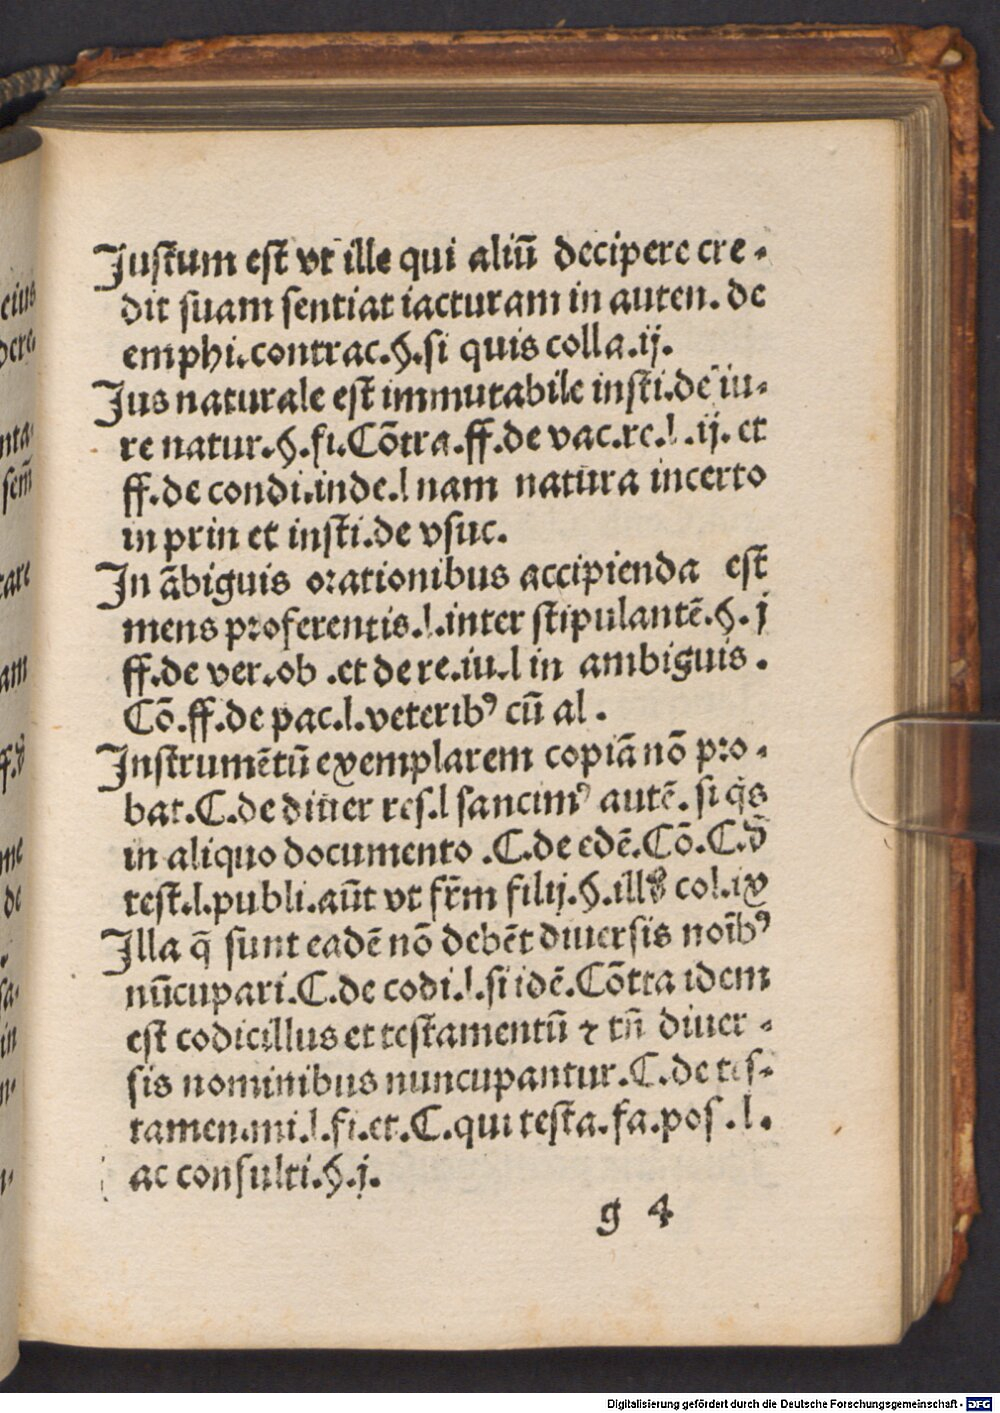 Justum est vt ille qui aliū decipere cre-
dit suam sentiat iacturam in auten. de
emphi. contrac. §. si quis colla. ij.
Jus naturale est immutabile insti. de iu-
re natur. §. fi. Cōtra. ff. de vac. re. l. ij. et
ff. de condi. inde. l nam natura incerto
in prin et insti. de vsuc.
In ābiguis orationibus accipienda est
mens proferentis. l. inter stipulantē. §. j
ff. de ver. ob . et de re. iu. l in ambiguis .
Cō. ff. de pac. l. veteribꝰ cū al .
Instrumētū exemplarem copiā nō pro-
bat. C. de diuer res. l sancimꝰ autē. si q̄s
in aliquo documento . C. de edē. Cō. C. d̄
test. l. publi. aūt vt fr̄m filij. §. ill8 col. ix
Illa q̄ sunt eadē nō debēt diuersis noībꝰ
nūcupari. C. de codi. l. si idē. Cōtra idem
est codicillus et testamentū ⁊ tn̄ diuer-
sis nominibus nuncupantur. C. de tes-
tamen. mi. l. fi. et. C. qui testa. fa. pos . l.
ac consulti. §. j.
g 4
Digitalisierung gefördert durch die Deutsche Forschungsgemeinschaft - DFG